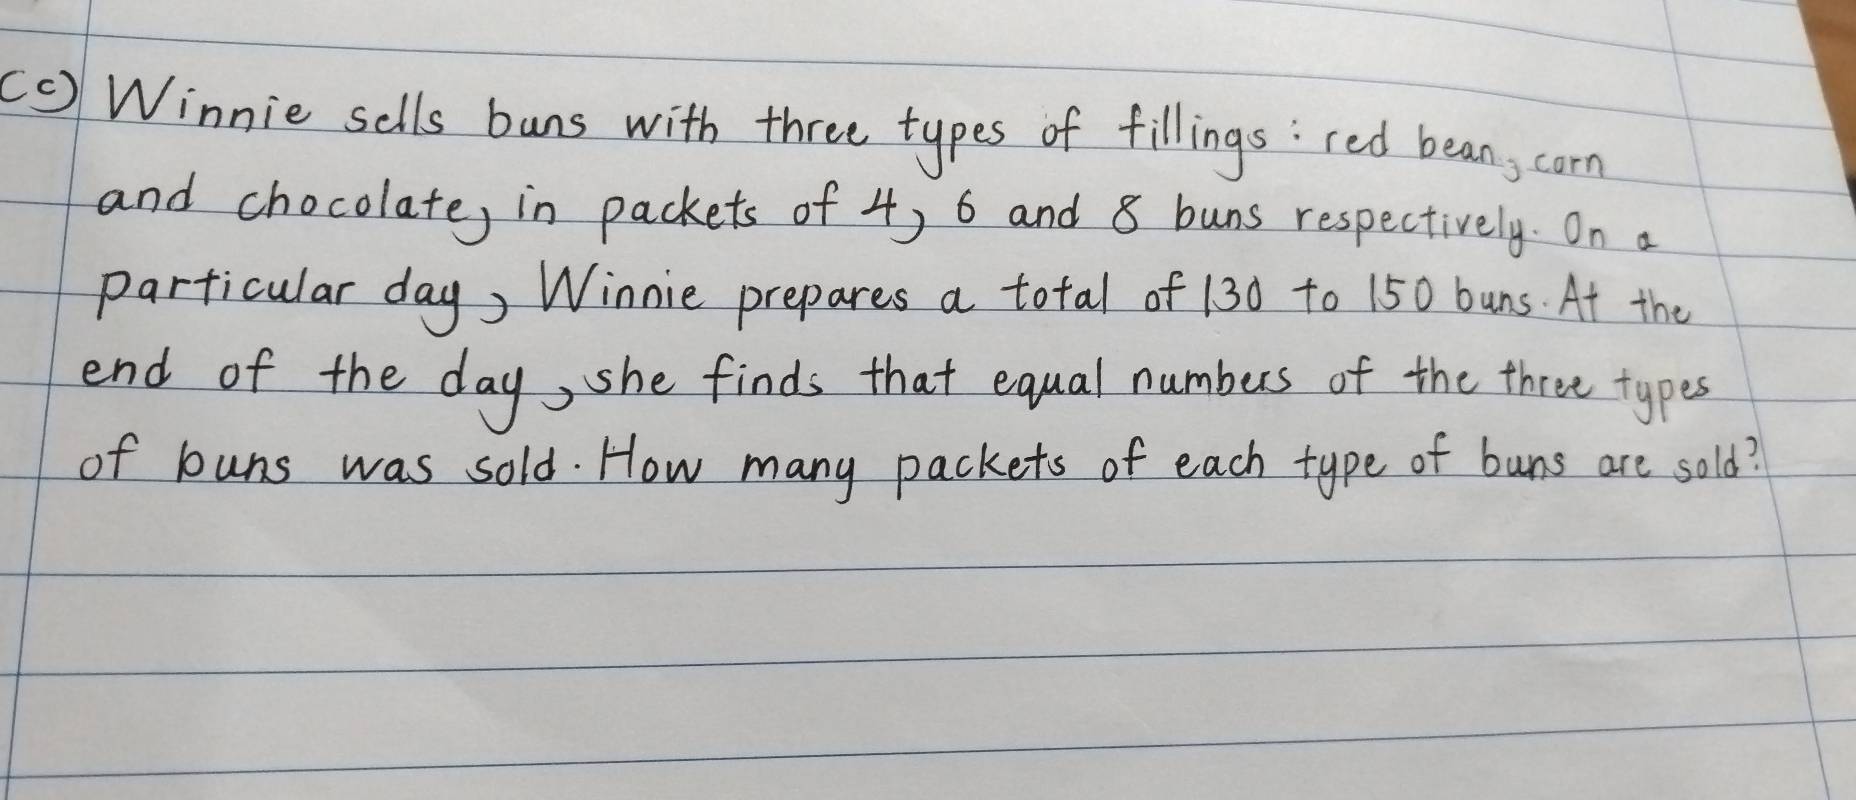 (c) Winnie sells buns with three types of fillings : red bean, corn
and chocolate, in packets of 4, 6 and 8 buns respectively. On a
particular day, Winnie prepares a total of 130 to 150 buns. At the
end of the day, she finds that equal numbers of the three types
of buns was sold. How many packets of each type of buns are sold?